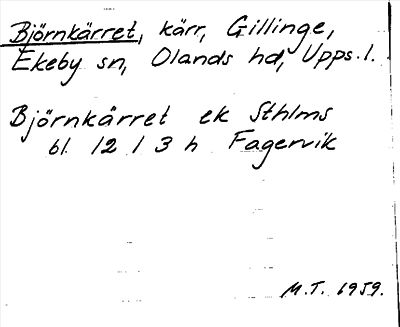 Björnkärret, kärr, Gillinge,
Ekeby sn, Olands hd, Upps. l.
Björnkärret ek Sthlms
bl. 12 1 3 h Fagervik
M.T. 1959.